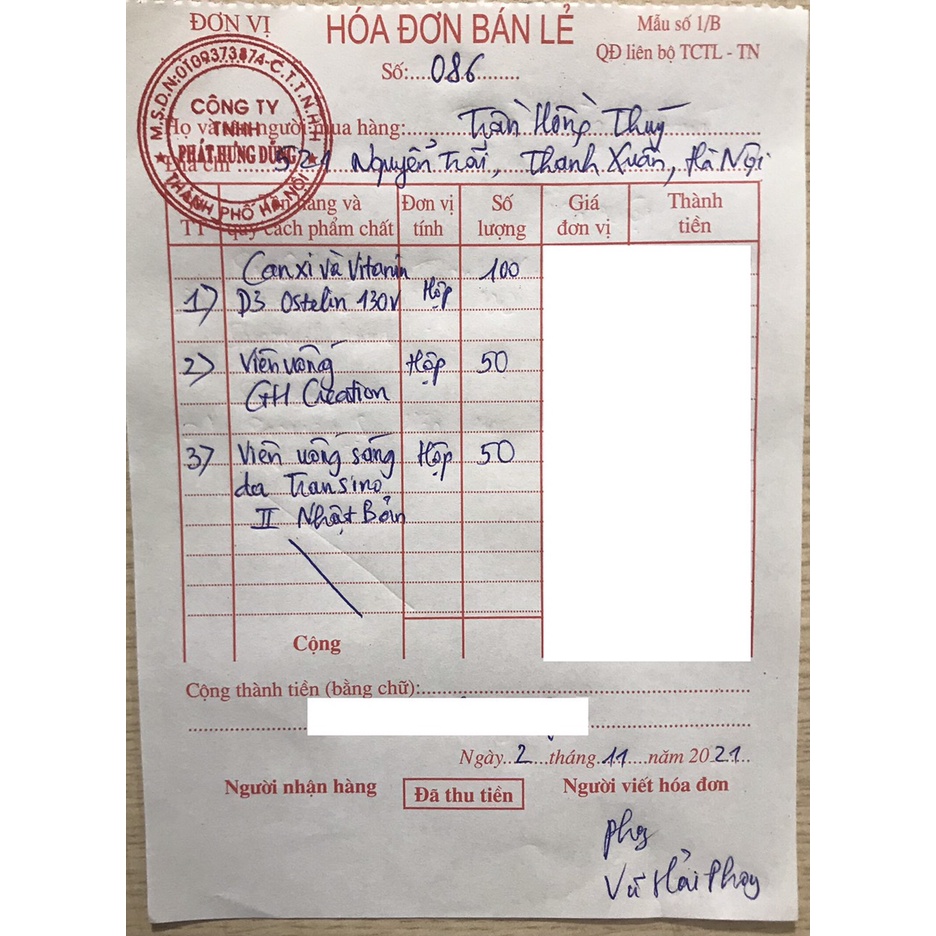 ĐƠN VỊ
HÓA ĐƠN BÁN LẺ
Mẫu số 1/B
QĐ liên bộ TCTL - TN
Số:....086........
M.S.D.N:0109373874-C.T.T.N.H.H
CÔNG TY
TNHH
PHÁT HƯNG DŨNG
THÀNH PHỐ HÀ NỘI
Họ và tên người mua hàng: Trần Hồng Thuý
Địa chỉ: 521 Nguyễn Trãi, Thanh Xuân, Hà Nội
TT Tên hàng và quy cách phẩm chất Đơn vị tính Số lượng Giá đơn vị Thành tiền
1) Canxi và Vitamin D3 Ostelin 130v Hộp 100
2) Viên uống GH Creation Hộp 50
3) Viên uống sáng da Transino II Nhật Bản Hộp 50
Cộng
Cộng thành tiền (bằng chữ):
Ngày..2...tháng.11....năm 2021..
Người nhận hàng
Đã thu tiền
Người viết hóa đơn
Vũ Hải Phong